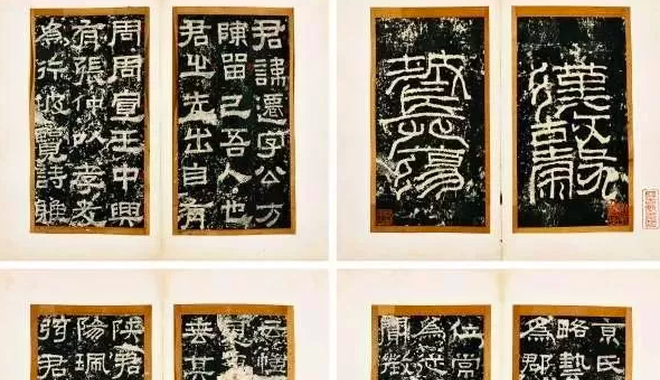 漢故穀
城長蕩
君諱遷字公方
陳留己吾人也
君之先出自有
周周宣王中興
有張仲以孝友
為行披覽詩雅
京氏
略藝
為郡
位常
為從
聞徵
云愷
恩東
垂其
陝君
陽珮
弦君